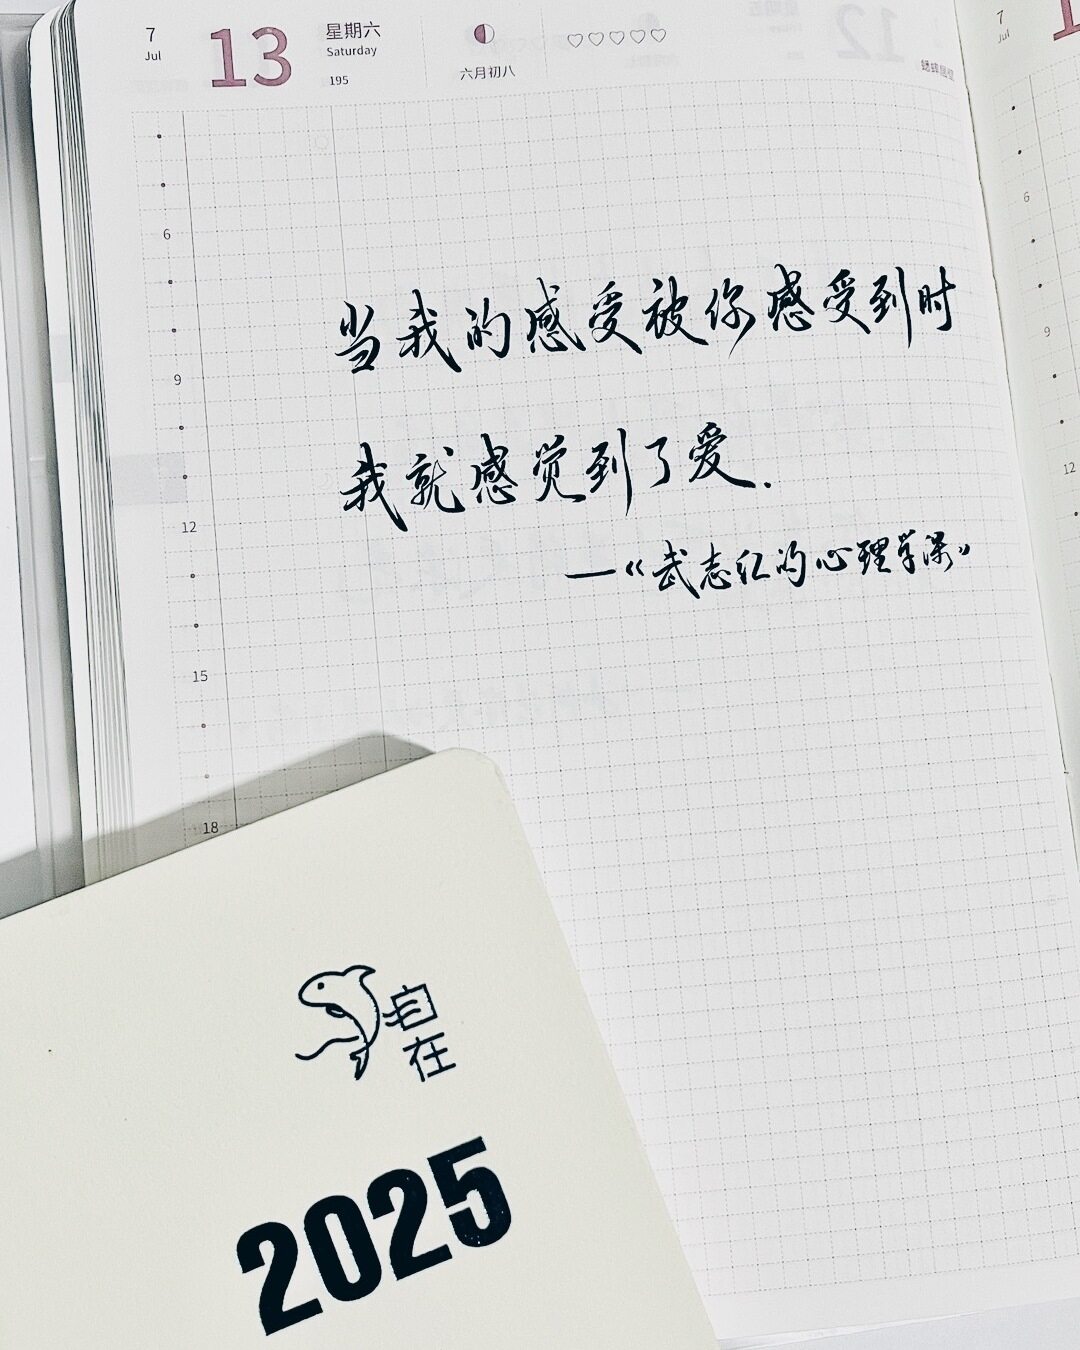 7
Jul
13
星期六
Saturday
195
六月初八
♡♡♡♡♡
6
9
12
15
18
当我的感受被你感受到时
我就感觉到了爱.
—《武志红的心理学课》
7
Jul
1
6
9
12
自在
2025